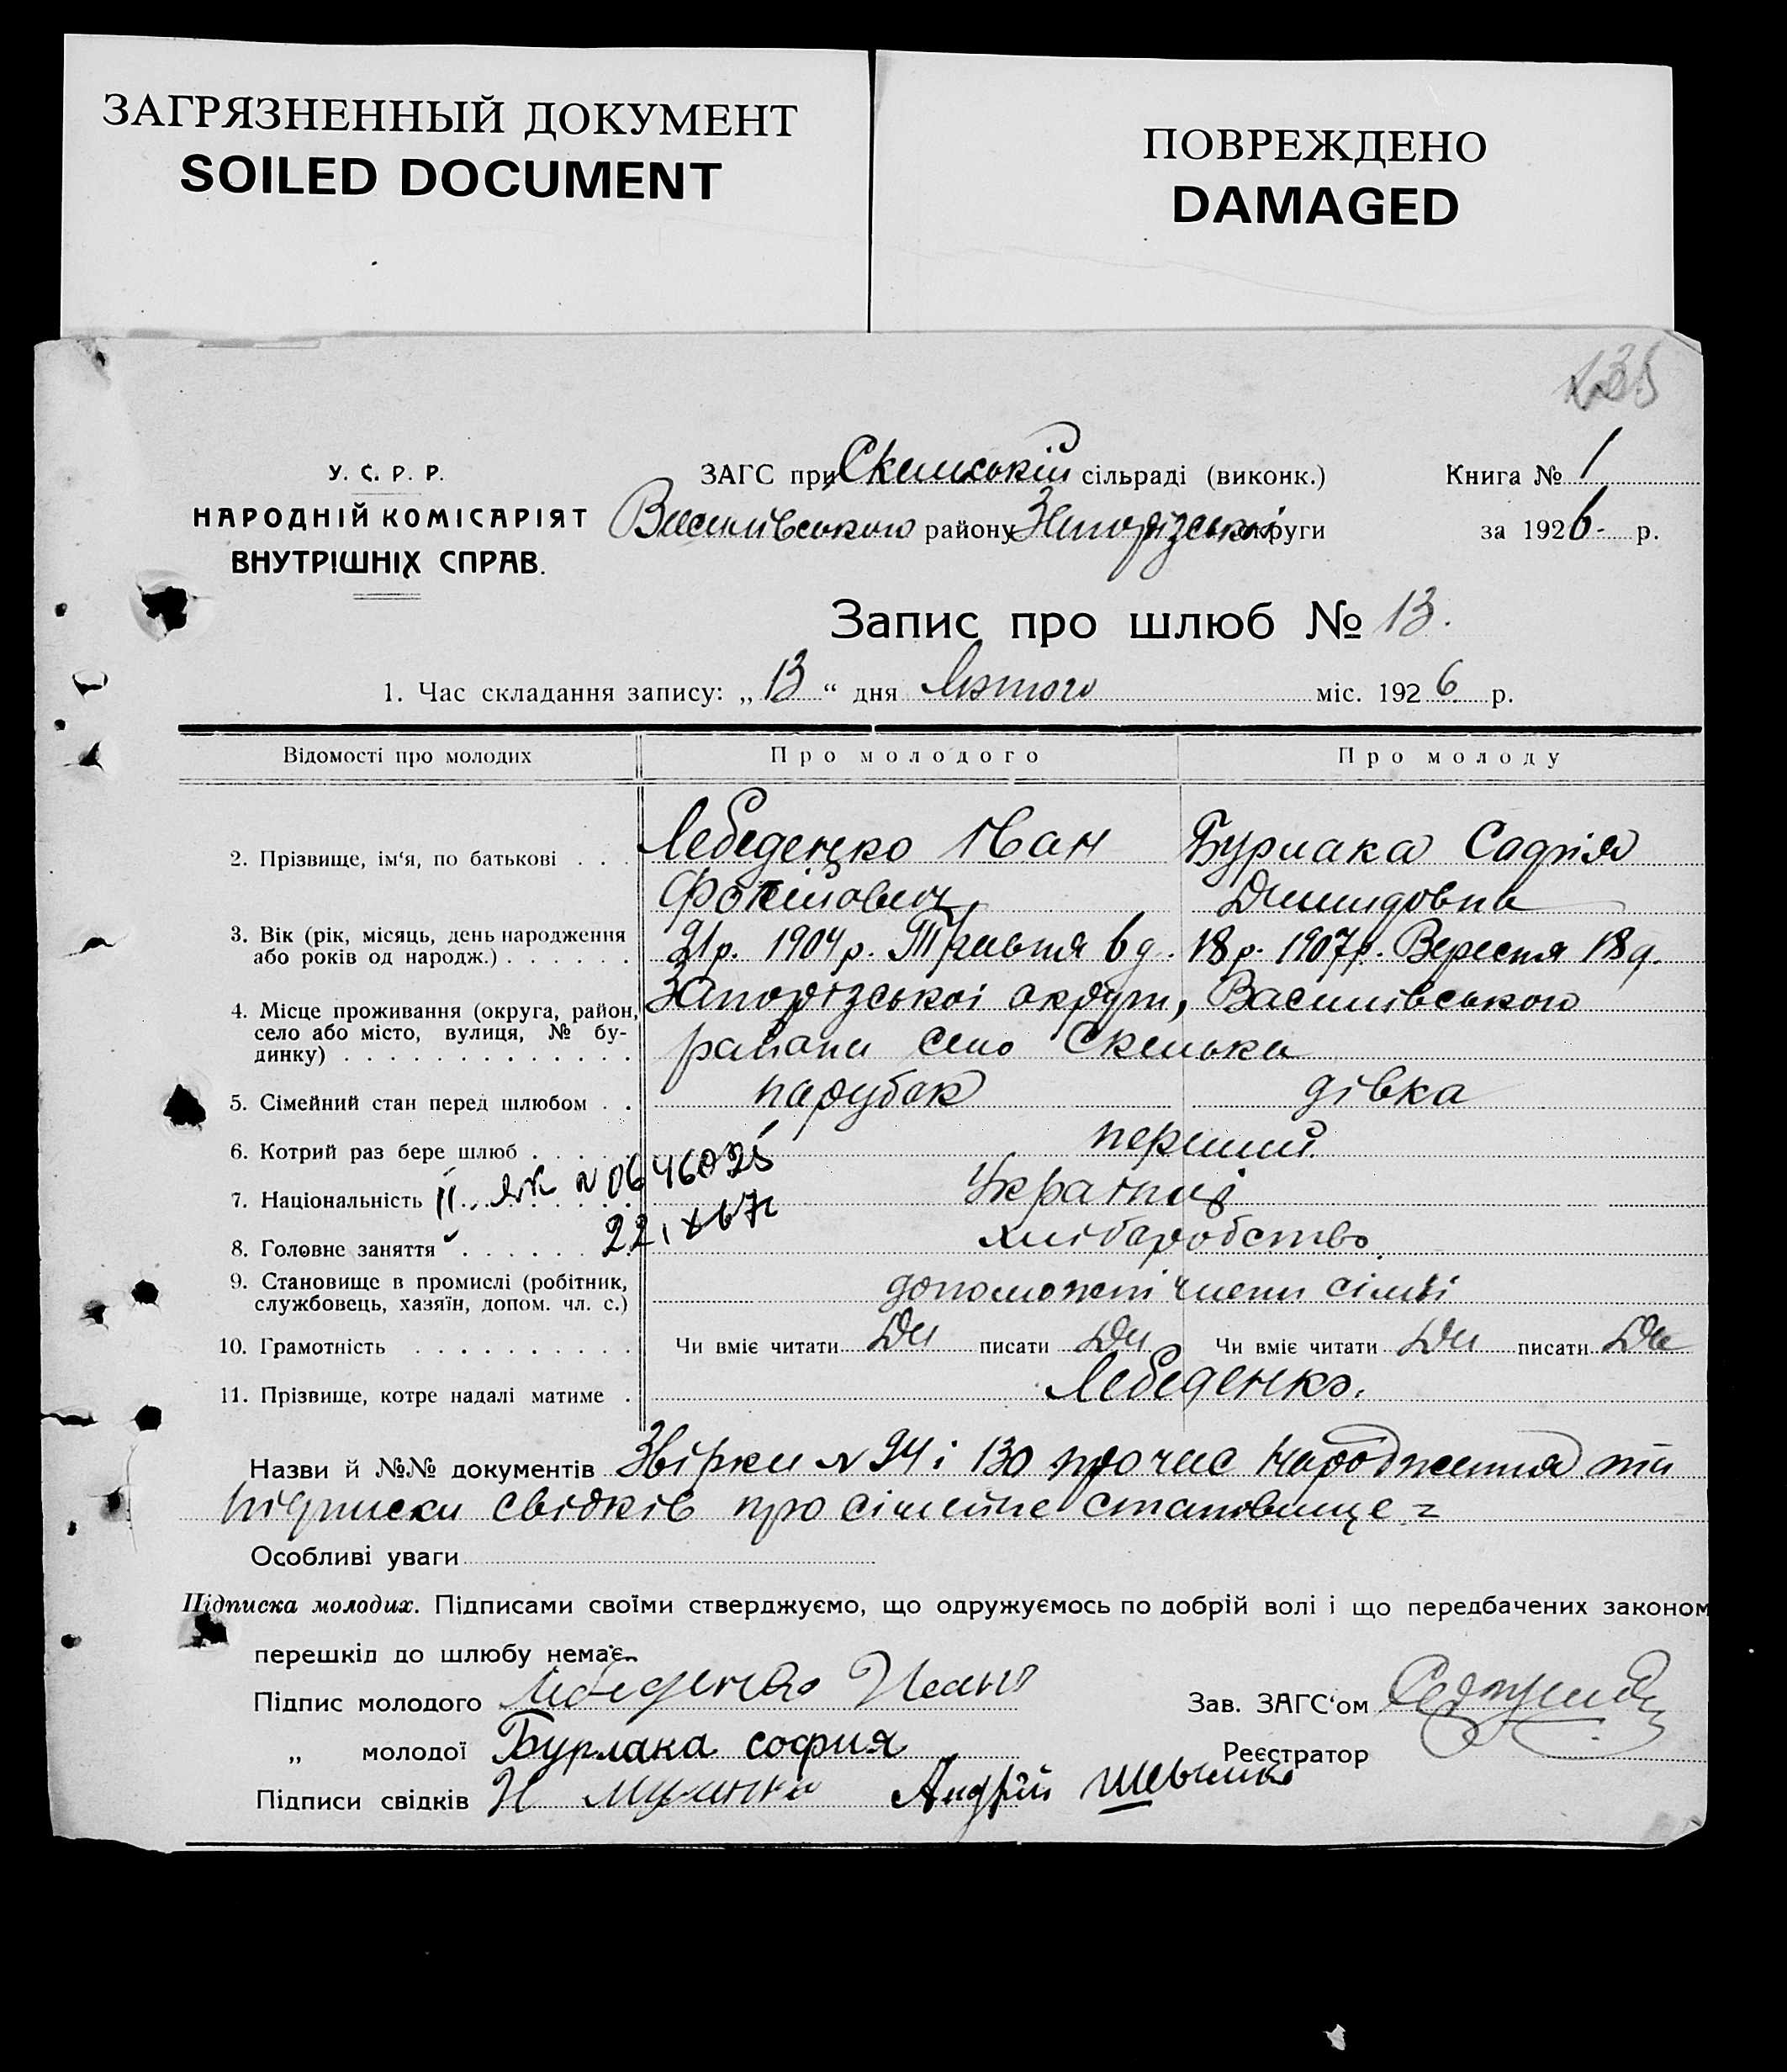 ЗАГРЯЗНЕННЫЙ ДОКУМЕНТ
SOILED DOCUMENT
ПОВРЕЖДЕНО
DAMAGED
У. С. Р. Р.
НАРОДНІЙ КОМІСАРІЯТ
ВНУТРІШНІХ СПРАВ.
ЗАГС при Скельській сільраді (виконк.)
Василівського району Запорізської округи
Книга № 1
за 1926 р.
Запис про шлюб № 13.
1. Час складання запису: „ 13 “ дня Лютого міс. 1926 р.
Відомості про молодих Про молодого Про молоду
2. Прізвище, ім‘я, по батькові . . . Лебеденко Иван Бурлака Садфія
Фокійович Демидовна
3. Вік (рік, місяць, день народження або років од народж.) . . . . . . 21р. 1904р. Травня 6 д. 18 р. 1907р. Вересня 18 д.
4. Місце проживання (округа, район, село або місто, вулиця, № будинку) . . . . . . . . . . . . . Запорізської округи, Василівського
района село Скелька
5. Сімейний стан перед шлюбом . . парубок дівка
6. Котрий раз бере шлюб . . . . . перший.
7. Національність Українці
II. ЯК № 0646025
22.
8. Головне заняття . . . . . . хліборобство.
9. Становище в промислі (робітник, службовець, хазяїн, допом. чл. с.) допоможні члени сімьі
10. Грамотність . . . . . . . . . . Чи вміє читати Да писати Да Чи вміє читати Да писати Да
11. Прізвище, котре надалі матиме . Лебеденко.
Назви й №№ документів Звірки № 94 і 130 про час народження та
підписки свідків про сімейне становище
Особливі уваги
Підписка молодих. Підписами своїми стверджуємо, що одружуємось по добрій волі і що передбачених законом
перешкід до шлюбу немає.
Підпис молодого Лебеденко Иван
Зав. ЗАГС‘ом
„ молодої Бурлака софия
Реєстратор
Підписи свідків Андрій